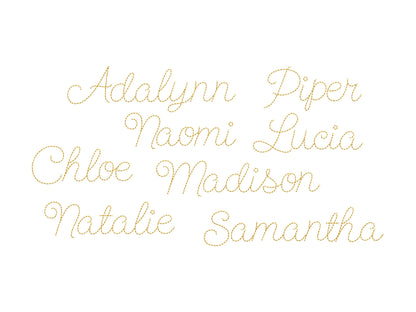 Adalynn Piper
Naomi Lucia
Chloe Madison
Natalie Samantha